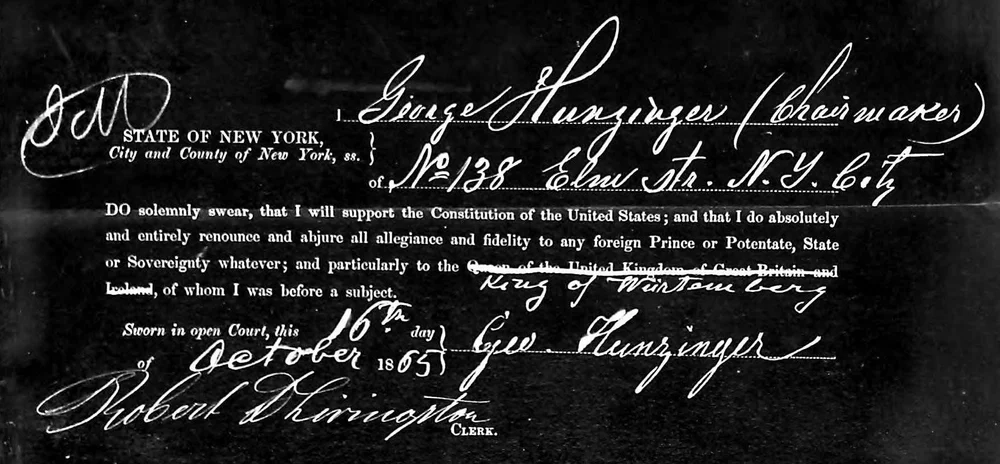 I George Hunzinger (Chairmaker)
STATE OF NEW YORK,
City and County of New York, ss.
of No 138 Elm str. N.Y. City
DO solemnly swear, that I will support the Constitution of the United States; and that I do absolutely
and entirely renounce and abjure all allegiance and fidelity to any foreign Prince or Potentate, State
or Sovereignty whatever; and particularly to the Queen of the United Kingdom of Great Britain and
King of Würtemberg
Ireland, of whom I was before a subject.
Sworn in open Court, this 16th day
Geo. Hunzinger
of October 1865
Robert D Livingston
CLERK.